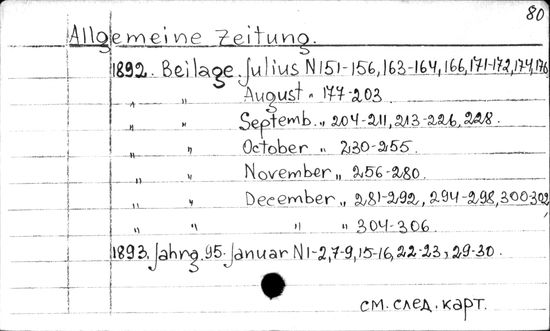 80
Allgemeine Zeitung.
1892. Beilage. Julius N151-156, 163-164, 166, 171-172, 174, 176
" " August " 177-203
" " Septemb. " 204-211, 213-226, 228.
" " October " 230-255.
" " November " 256-280.
" " December " 281-292, 294-298, 300-302,
" " " " 304-306.
1893. Jahrg. 95. Januar N1-2, 7-9, 15-16, 22-23, 29-30.
см. след. карт.